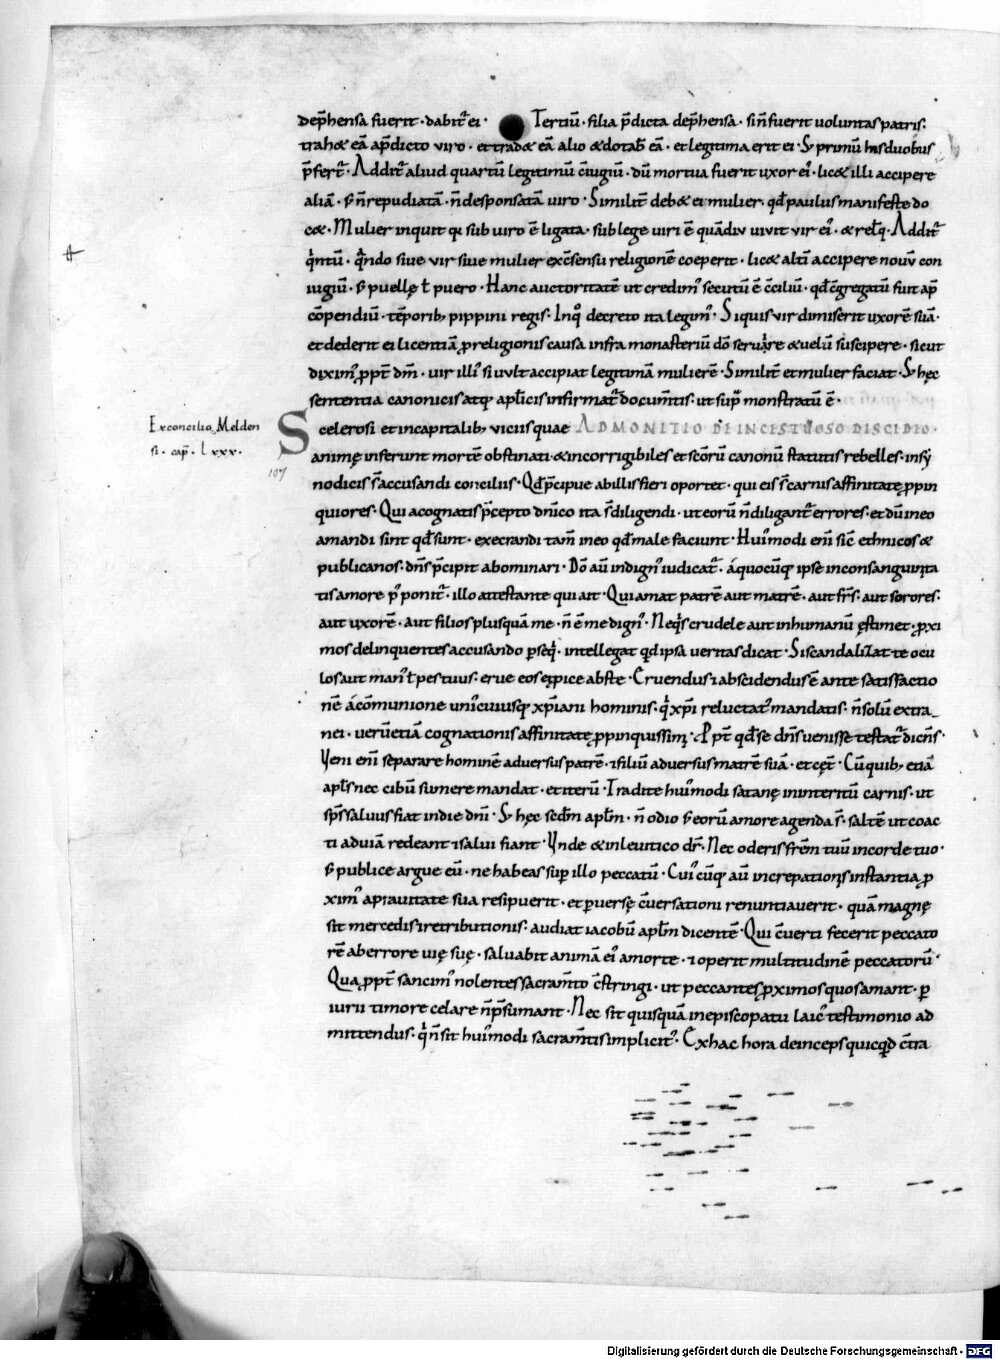 dep̄hensa fuerit · dabit̄ ei · Tertiū · filia p̄dicta dep̄hensa · sin̄ fuerit uoluntas patris :
trah& eā ap̄dicto viro · et trad& eā alio & dotab̄ eā · et legitima erit ei · S; primū his duobus
p̄fert̄ · Addit̄ aliud quartū legitimū c̄iugiū · dū mortua fuerit uxor ei' · lic& illi accipere
aliā · s; n̄ repudiatā · n̄ desponsatā uiro · Similit̄ deb& ei mulier · qd̄ paulus manifeste do
c& · Mulier inquit q̨ sub uiro ē ligata · sub lege uiri ē quādiv uivit vir ei' · & rel̄q · Addit̄
q'ntū · q'ndo siue vir siue mulier exc̄sensu religionē coeperit · lic& altī accipere nouv̄ con
iugiū · s; puellę ł puero · Hanc auctoritatē ut credim' secutū ē c̄ciliū · qd̄ c̄gregatū fuit ap
cōpendiū · tēporib; pippini regis · Inq' decreto ita legim' · Siquis vir dimiserit uxorē suā ·
et dederit ei licentiā p religionis causa infra monasteriū dō seruire & uelū suscipere · sicut
dixim' ppt̄ dm̄ · uir ill' si uult accipiat legitimā mulierē · Similit̄ et mulier faciat · S; hęc
sententia canonicis atq; apl̄icis infirmat̄ documtīs · ut sup' monstratū ē ·
Ex concilio Melden
si · cap̄ · lxxx ·
Scelerosi et incapitalib; viciis quae ADMONITIO DE INCESTUOSO DISCIDIO ·
107
animę inferunt mortē obstinati & incorrigibiles et sc̄orū canonū statutis rebelles · insy
nodicis s̄ accusandi conciliis · Qd̄ p̄cipue ab illis fieri oportet · qui eis s̄ carnis affinitatę ppin
quiores · Qui acognatis p̄cepto dn̄ico ita s̄ diligendi · ut eorū n̄ diligant̄ errores · et dū ineo
amandi sint qd̄ sunt · execrandi tam̄ ineo qd̄ male faciunt · Hui'modi eni̅ sic̄ ethnicos &
publicanos · dn̄s p̄cipit abominari · Dō aū indign' iudicat̄ · áquocūq; ipse inconsanguinita
tis amore p'ponit̄ · illo attestante qui ait · Qui amat patrē aut matrē · aut fr̄s · aut sorores ·
aut uxorē · aut filios plusquā me · n̄ ē me dign' · Neq's crudele aut inhumanū ęstimet · pxi
mos delinquentes accusando pseq' · intellegat qd̄ ipsa ueritas dicat · Si scandalizat te ocu
los aut man' ł pes tuus : erue eos & pice abste · Eruendus ⁊ abscidendus ē ante satisfactio
nē ácōmunione uni'cuiusq; xp̄iani hominis · q' xp̄i reluctat' mandatis · n̄ solū extra
nei · ueruetiā cognationis affinitatę ppinquissim' · Ppt̄ qd̄ se dn̄s uenisse testat̄ dicn̄s ·
Veni eni̅ separare hominē adversus patrē · ⁊ filiū aduersus matrē suā · et cęt̄ · Cū quib; etiā
apl̄s nec cibū sumere mandat · et iterū · Tradite hui'modi satanę ininteritū carnis · ut
sp̄s saluus fiat indie dnī · S; hęc secd̄m apl̄m · n̄ odio s; eorū amore agenda s̄ · saltē ut coac
ti aduiā redeant ⁊ salui fiant · Vnde & inleuitico dr̄ · Nec oderis fr̄em tuū incorde tuo ·
s; publice argue eū · ne habeas sup illo peccatū · Cui'cūq; aū increpationis instantia p
xim' aprauitate sua resipuerit · et puersę c̄uersationi renuntiauerit · quā magnę
sit mercedis ⁊ retributionis : audiat iacobū apl̄m dicentē · Qui c̄uerti fecerit peccato
rē aberrore uię suę · saluabit animā ei' amorte · ⁊ operit multitudinē peccatorū ·
Quapppt̄ sancim' nolentes sacram̄to c̄stringi · ut peccantes pximos quos amant · p
iurii timore celare n̄ p̄sumant · Nec sit quisquā inepiscopatu laic' testimonio ad
mittendus · q' n̄ sit hui'modi sacram̄tis implicit' · Ex hac hora deinceps quicqd̄ c̄tra
Digitalisierung gefördert durch die Deutsche Forschungsgemeinschaft - DFG